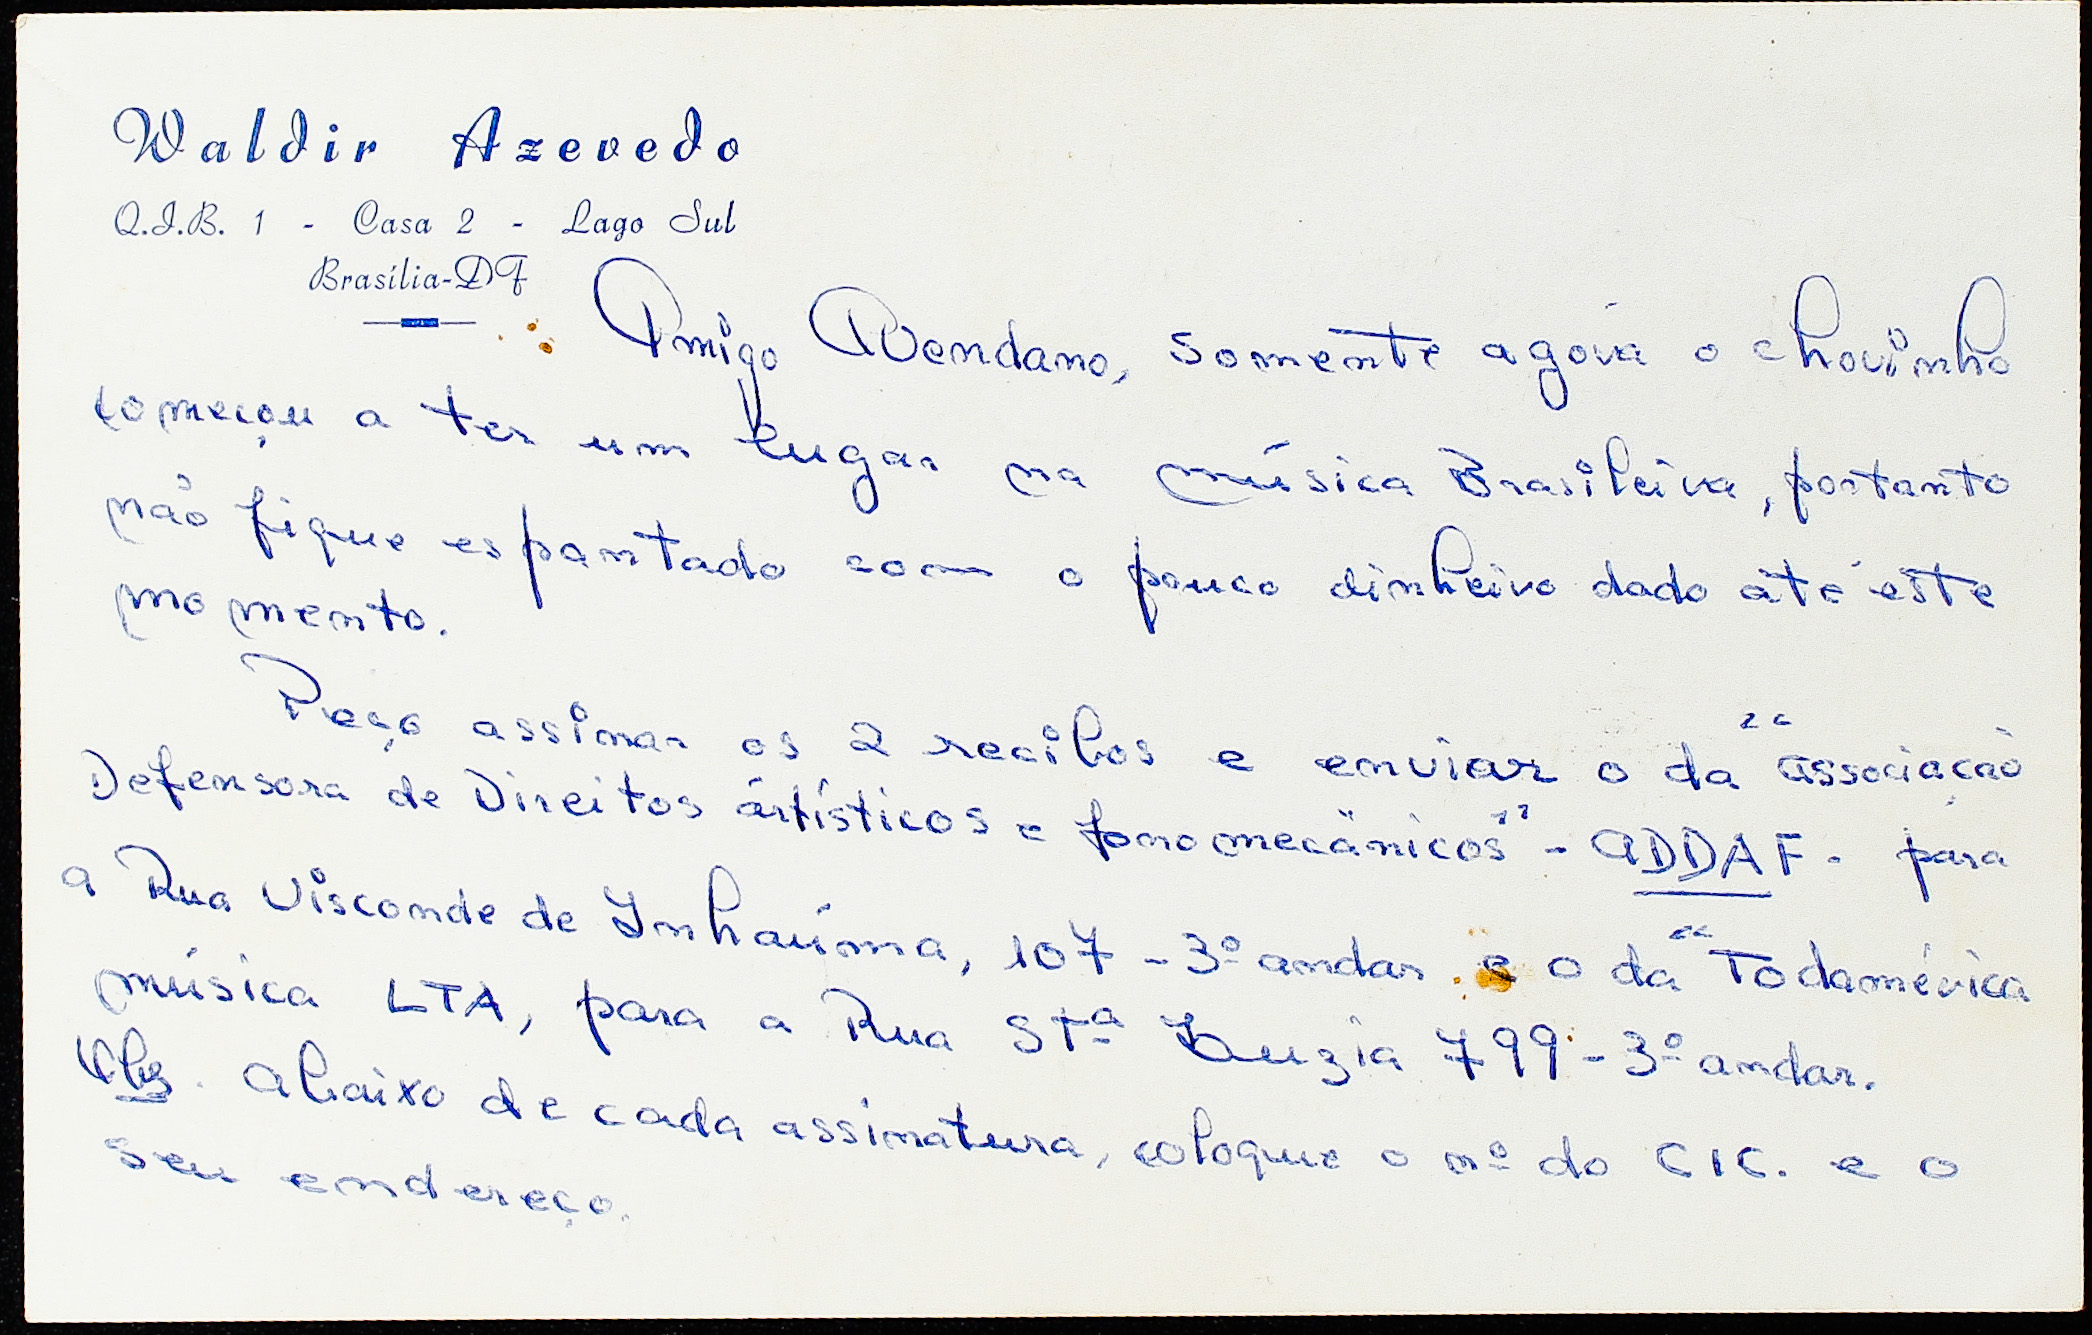 Waldir Azevedo
Q.I.B. 1 - Casa 2 - Lago Sul
Brasília-DF
Amigo Avendano, somente agora o chorinho
começou a ter um lugar na música Brasileira, portanto
não fique espantado com o pouco dinheiro dado até este
momento.
Peço assinar os 2 recibos e enviar o da "associação
Defensora de Direitos ártísticos e fonomecânicos" - ADDAF - para
a Rua Visconde de Inhaúma, 107 - 3º andar e o da "Todamérica
música LTA, para a Rua Stª Luzia 799 - 3º andar.
Abaixo de cada assinatura, coloque o nº do CIC. e o
seu endereço.